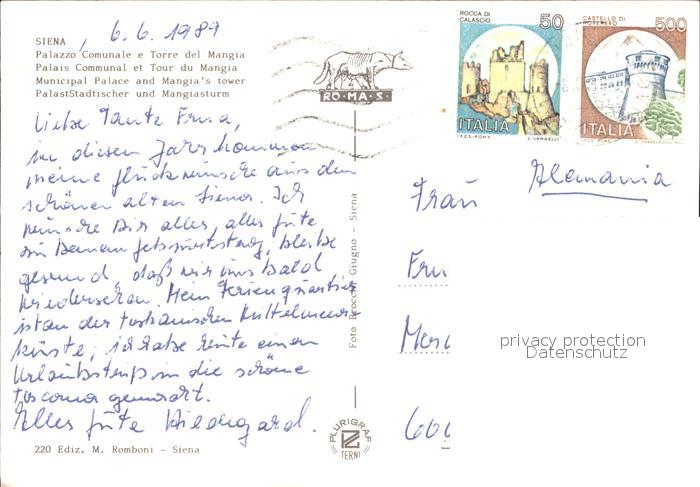 6.6.1987
SIENA,
Palazzo Comunale e Torre del Mangia
Palais Communal et Tour du Mangia
Municipal Palace and Mangia's tower
PalastStadtischer und Mangiasturm
RO·MA·S·
ROCCA DI CALASCIO
50
ITALIA
I.P.Z.S.-ROMA
E. VANGELLI
CASTELLO DI ROVERETO
500
ITALIA
Liebe Tante Erna,
in diesem Jahr kommen
meine Glückwünsche aus dem
schönen alten Siena. Ich
wünsche Dir alles, alles Gute
zu Deinem Geburtstag, bleibe
gesund, daß wir uns bald
wiedersehen. Mein Ferienquartier
ist an der toskanischen Mittelmeer
küste, ich habe heute einen
Urlaubstrip in die schöne
Toscana gemacht.
Alles Gute Hildegard.
220 Ediz. M. Romboni - Siena
Foto Brocchi Giugno - Siena
PLURIGRAF
TERNI
Alemania
Frau
privacy protection
Datenschutz
600